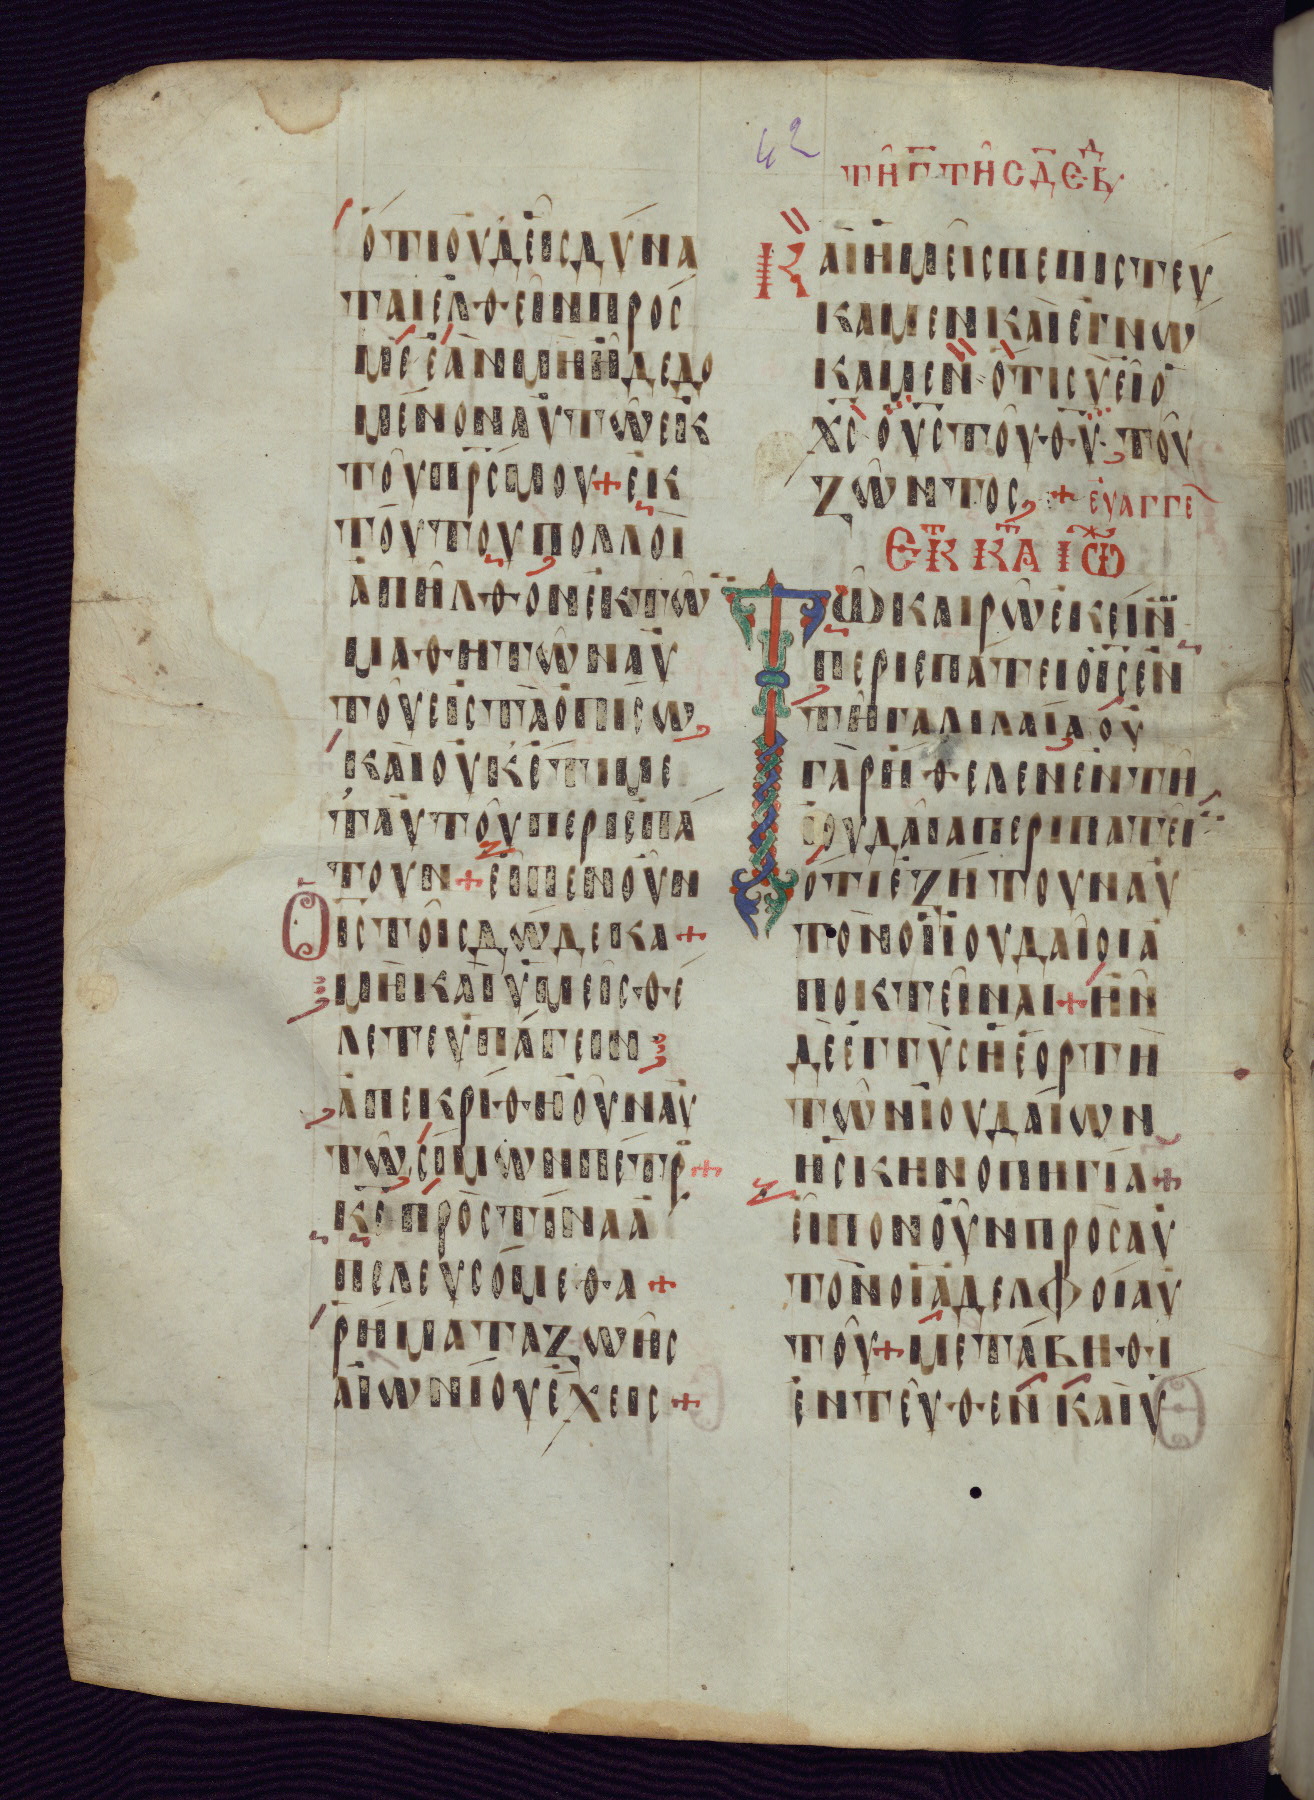 42
τῆ Γ τῆς Δ ἑβδ
ὅτι οὐδεὶς δύνα
ται ἐλθεῖν πρός
μὲ ἐὰν μὴ ἦ δεδο
μένον αὐτῶ ἐκ
τοῦ πρς μου + ἐκ
τούτου πολλοὶ
ἀπῆλθον ἐκ τῶ
μαθητῶν αὐ
τοῦ εἰς τὰ ὀπίσω
καὶ οὐκέτι με
τ' αὐτοῦ περιεπά
τουν + εἶπεν οὖν
Ὁ ις τοῖς δώδεκα +
μὴ καὶ ὑμεῖς θέ
λετε ὑπάγειν
ἀπεκρίθη οὖν αὐ
τῶ σίμων πέτρ +
κε πρὸς τίνα ἀ
πελευσόμεθα +
ῥήματα ζωῆς
αἰωνίου ἔχεις +
Καὶ ἡμεῖς πεπιστεύ
καμεν καὶ ἐγνώ
καμεν ὅτι σὺ εἶ ὁ
χς ὁ υς τοῦ θυ τοῦ
ζῶντος + εὐαγγε
ΕΚ Κ ΑΙΩ
Τῶ καιρῶ ἐκείν
περιεπάτει ὁ ις ἐν
τῆ γαλιλαία οὐ
γὰρ ἤθελεν ἐν τῆ
ἰουδαία περιπατεῖ
ὅτι ἐζήτουν αὐ
τὸν οἱ ἰουδαῖοι ἀ
ποκτεῖναι + ἦν
δὲ ἐγγὺς ἡ ἑορτὴ
τῶν ἰουδαίων
ἡ σκηνοπηγία +
εἶπον οὖν πρὸς αὐ
τὸν οἱ ἀδελφοὶ αὐ
τοῦ + μετάβηθι
ἐντεῦθεν καὶ ὕ